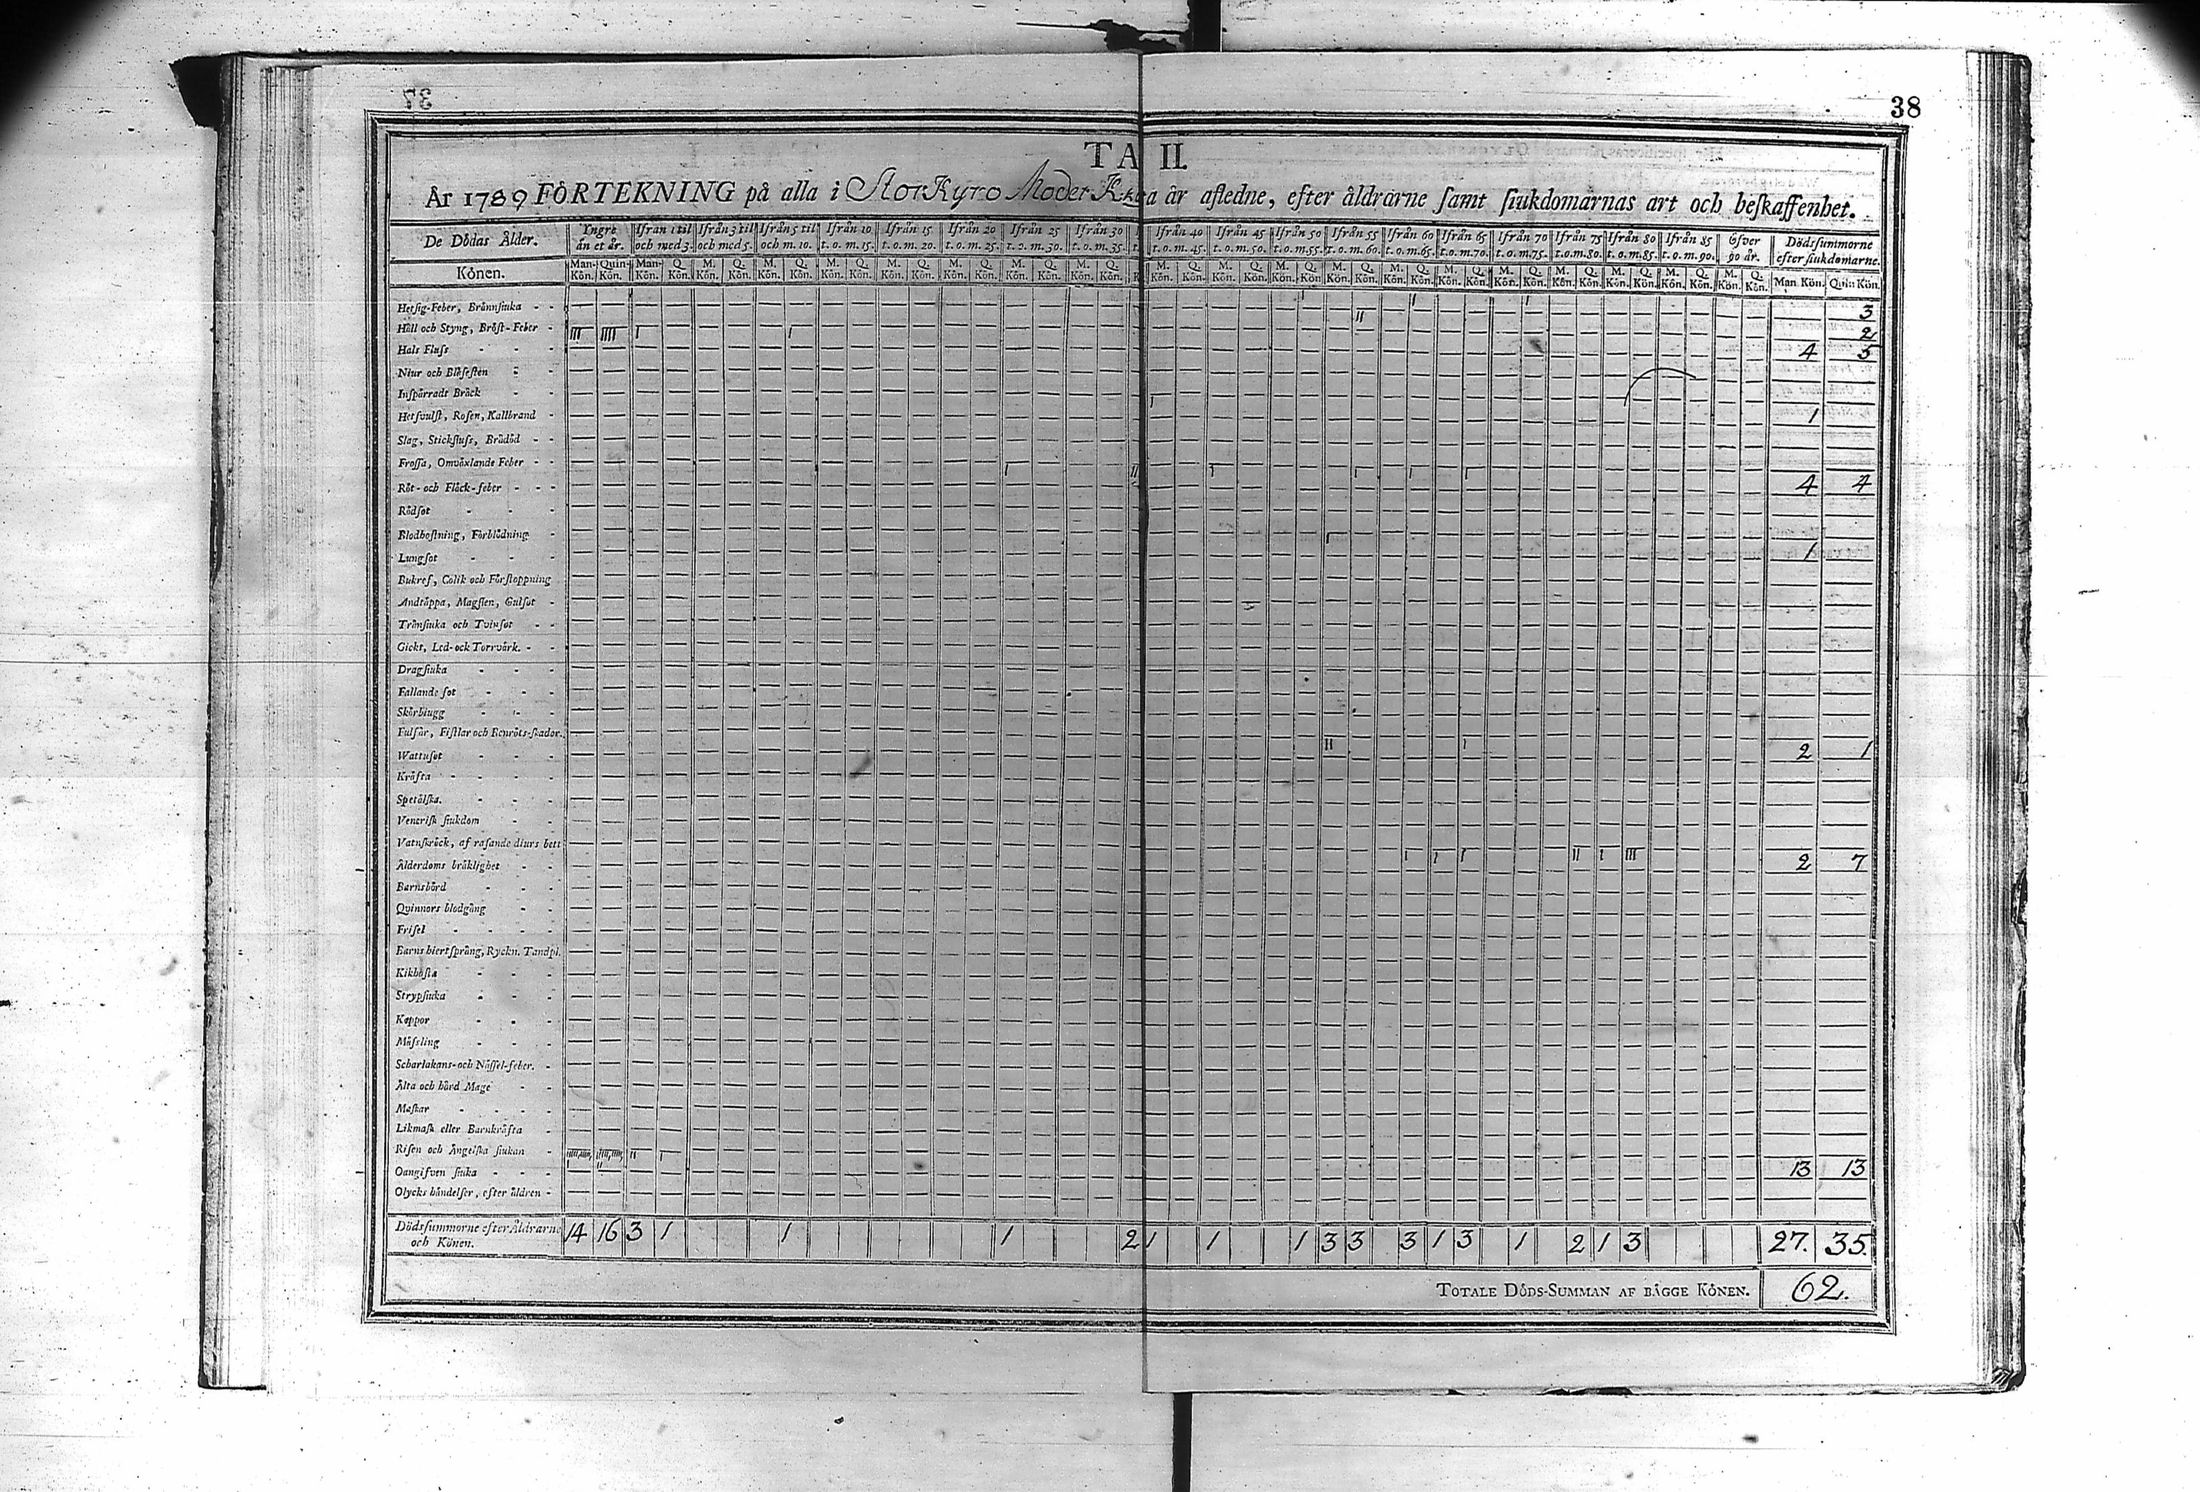 38
TA II.
År 1789 FÖRTEKNING på alla i StorKyro Moder K:ka år afledne, efter åldrarne samt siukdomarnas art och beskaffenhet.
De Dödas Ålder. Yngre än et år. Ifrån 1 til och med 3. Ifrån 3 til och med 5. Ifrån 5 til och m. 10. Ifrån 10 t.o.m. 15. Ifrån 15 t.o.m. 20. Ifrån 20 t.o.m. 25. Ifrån 25 t.o.m. 30. Ifrån 30 t.o.m. 35. Ifrån 40 t.o.m. 45. Ifrån 45 t.o.m. 50. Ifrån 50 t.o.m. 55. Ifrån 55 t.o.m. 60. Ifrån 60 t.o.m. 65. Ifrån 65 t.o.m. 70. Ifrån 70 t.o.m. 75. Ifrån 75 t.o.m. 80. Ifrån 80 t.o.m. 85. Ifrån 85 t.o.m. 90. Öfver 90 år. Dödssummorne efter siukdomarne.
Könen. Man-Kön. Quin-Kön. Man-Kön. Q. Kön. M. Kön. Q. Kön. Man Kön. Quin Kön.
Hetsig-Feber, Brännsiuka 3
Håll och Styng, Bröst-Feber 2
Hals Fluss 4 5
Niur och Blåsesten
Inspärradt Bråck
Hetsvulst, Rosen, Kallbrand 1
Slag, Stickfluss, Brådöd
Frossa, Omväxlande Feber
Röt- och Fläck-feber 4 4
Rödsot
Blodhostning, Förblödning
Lungsot 1
Bukref, Colik och Förstoppning
Andtäppa, Magsien, Gulsot
Trånsiuka och Tvinsot
Gickt, Led- ock Torrvärk.
Dragsiuka
Fallande sot
Skörbiugg
Fulsår, Fistlar och Benröts-skador.
Wattusot 2 1
Kräfta
Spetälska.
Venerisk siukdom
Vatuskräck, af rasande diurs bett
Ålderdoms bräklighet 2 7
Barnsbörd
Qvinnors blodgång
Frisel
Barns hiertsprång, Ryckn. Tandpl.
Kikhosta
Strypsiuka
Koppor
Mässling
Scharlakans- och Nässel-feber.
Älta och hård Mage
Maskar
Likmask eller Barnkräfta
Risen och Ängelska siukan
Oangifven siuka 13 13
Olycks händelser, efter åldren
Dödssummorne efter Åldrarne och Könen. 14 16 3 1 1 1 2 1 1 1 3 3 3 1 3 1 2 1 3 27. 35.
TOTALE DÖDS-SUMMAN AF BÄGGE KÖNEN. 62.